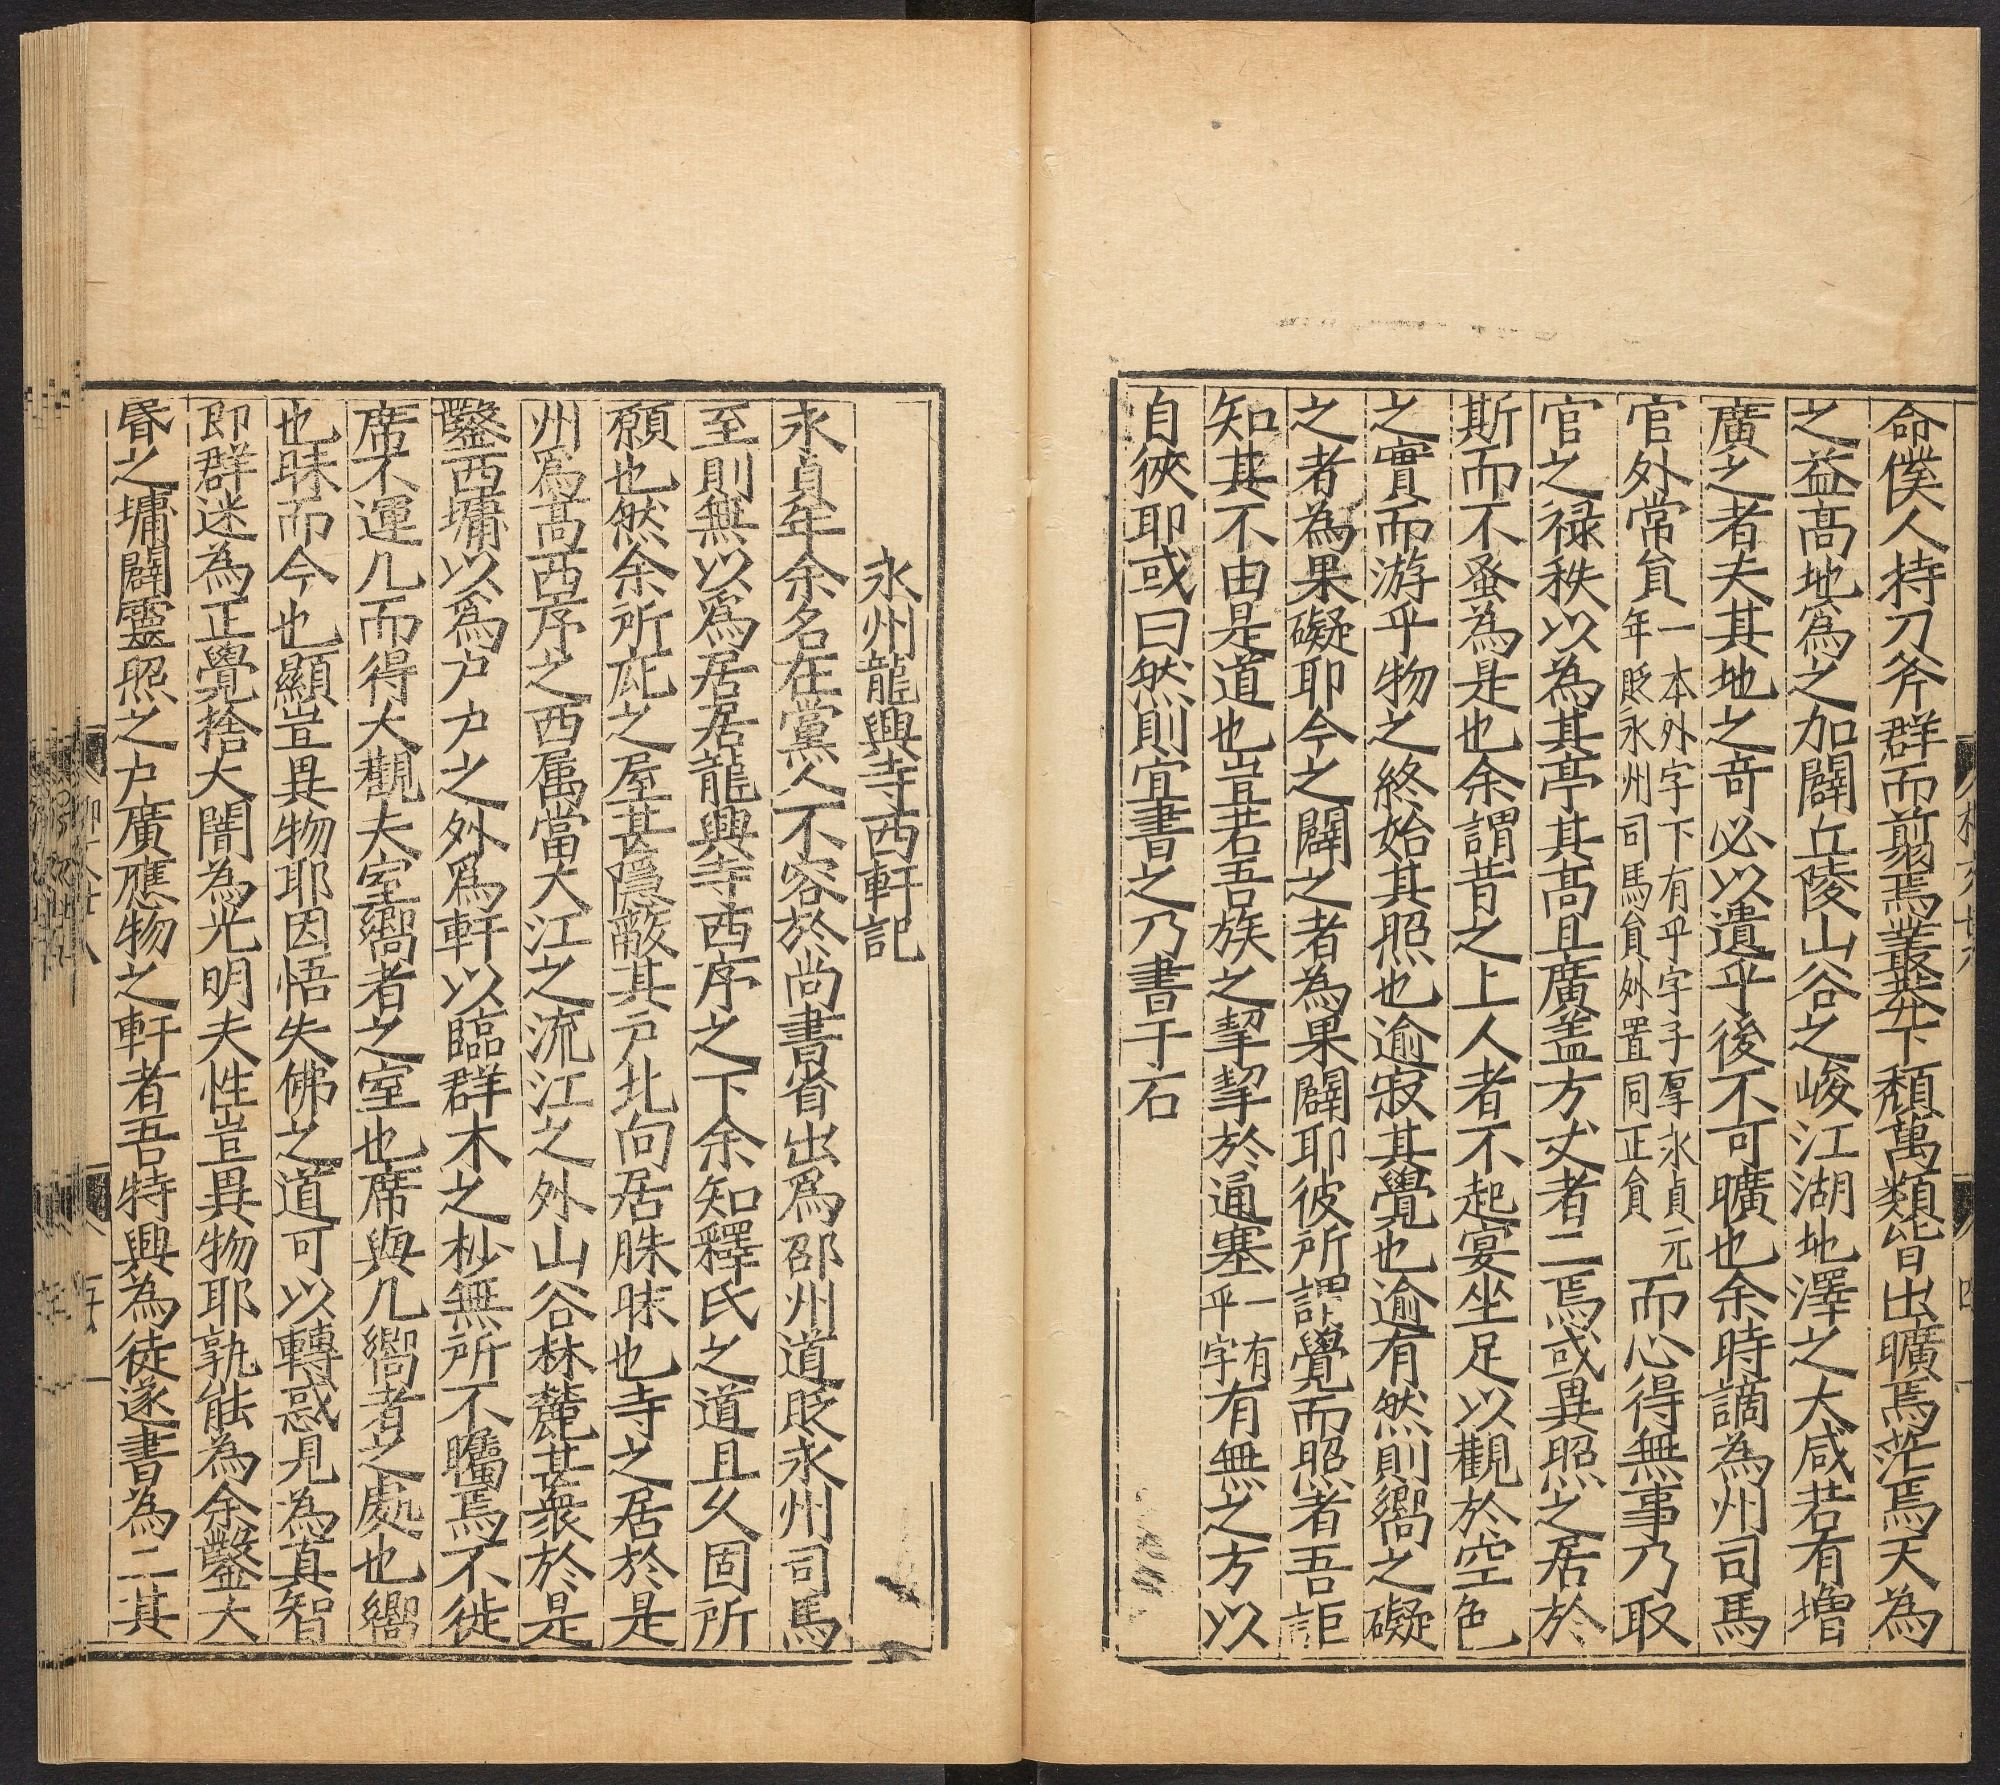 命僕人持刀斧群而翦焉叢莽下頹萬類皆出曠焉茫焉天為
之益髙地爲之加闢丘陵山谷之峻江湖地澤之大咸若有增
廣之者夫其地之竒必以遺乎後不可曠也余時謫為州司馬
官外常貟一本外字下有乎字子厚永貞元年貶永州司馬貟外置同正貟而心得無事乃取
官之禄秩以為其亭其髙且廣盖方丈者二焉或異照之居於
斯而不蚤為是也余謂昔之上人者不起宴坐足以觀於空色
之實而游乎物之終始其照也逾寂其覺也逾有然則嚮之礙
之者為果礙耶今之闢之者為果闢耶彼所謂覺而照者吾詎
知其不由是道也豈若吾族之挈挈於通塞一有乎字有無之方以
自狹耶或曰然則宜書之乃書于石
永州龍興寺西軒記
永貞年余名在黨人不容於尚書省出爲邵州道貶永州司馬
至則無以爲居居龍興寺西序之下余知釋氏之道且乆固所
願也然余所庇之屋甚隱蔽其戸北向居昧昧也寺之居於是
州爲髙西序之西属當大江之流江之外山谷林麓甚衆於是
鑿西墉以爲户户之外爲軒以臨群木之杪無所不矚焉不徙
席不運几而得大觀夫室嚮者之室也席與几嚮者之處也嚮
也昧而今也顯豈異物耶因悟夫佛之道可以轉惑見為真智
即群迷為正覺捨大闇為光明夫性豈異物耶孰能為余鑿大
昏之墉闢靈照之户廣應物之軒者吾特與為徒遂書為二其